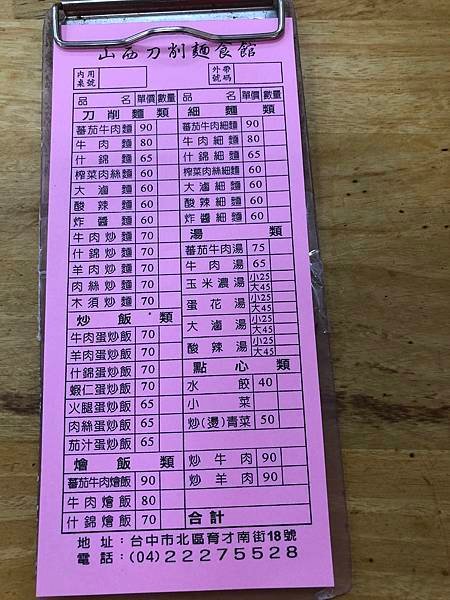 山西刀削麵食館
內用桌號
外帶號碼
品名 單價 數量
刀削麵類
蕃茄牛肉麵 90
牛肉麵 80
什錦麵 65
榨菜肉絲麵 60
大滷麵 60
酸辣麵 60
炸醬麵 60
牛肉炒麵 70
什錦炒麵 70
羊肉炒麵 70
肉絲炒麵 70
木須炒麵 70
炒飯類
牛肉蛋炒飯 70
羊肉蛋炒飯 70
什錦蛋炒飯 70
蝦仁蛋炒飯 70
火腿蛋炒飯 65
肉絲蛋炒飯 65
茄汁蛋炒飯 65
燴飯類
蕃茄牛肉燴飯 90
牛肉燴飯 80
什錦燴飯 70
品名 單價 數量
細麵類
蕃茄牛肉細麵 90
牛肉細麵 80
什錦細麵 65
榨菜肉絲細麵 60
大滷細麵 60
酸辣細麵 60
炸醬細麵 60
湯類
蕃茄牛肉湯 75
牛肉湯 65
玉米濃湯 小25 大45
蛋花湯 小25 大45
大滷湯 小25 大45
酸辣湯 小25 大45
點心類
水餃 40
小菜
炒(燙)青菜 50
炒牛肉 90
炒羊肉 90
合計
地址:台中市北區育才南街18號
電話:(04)22275528